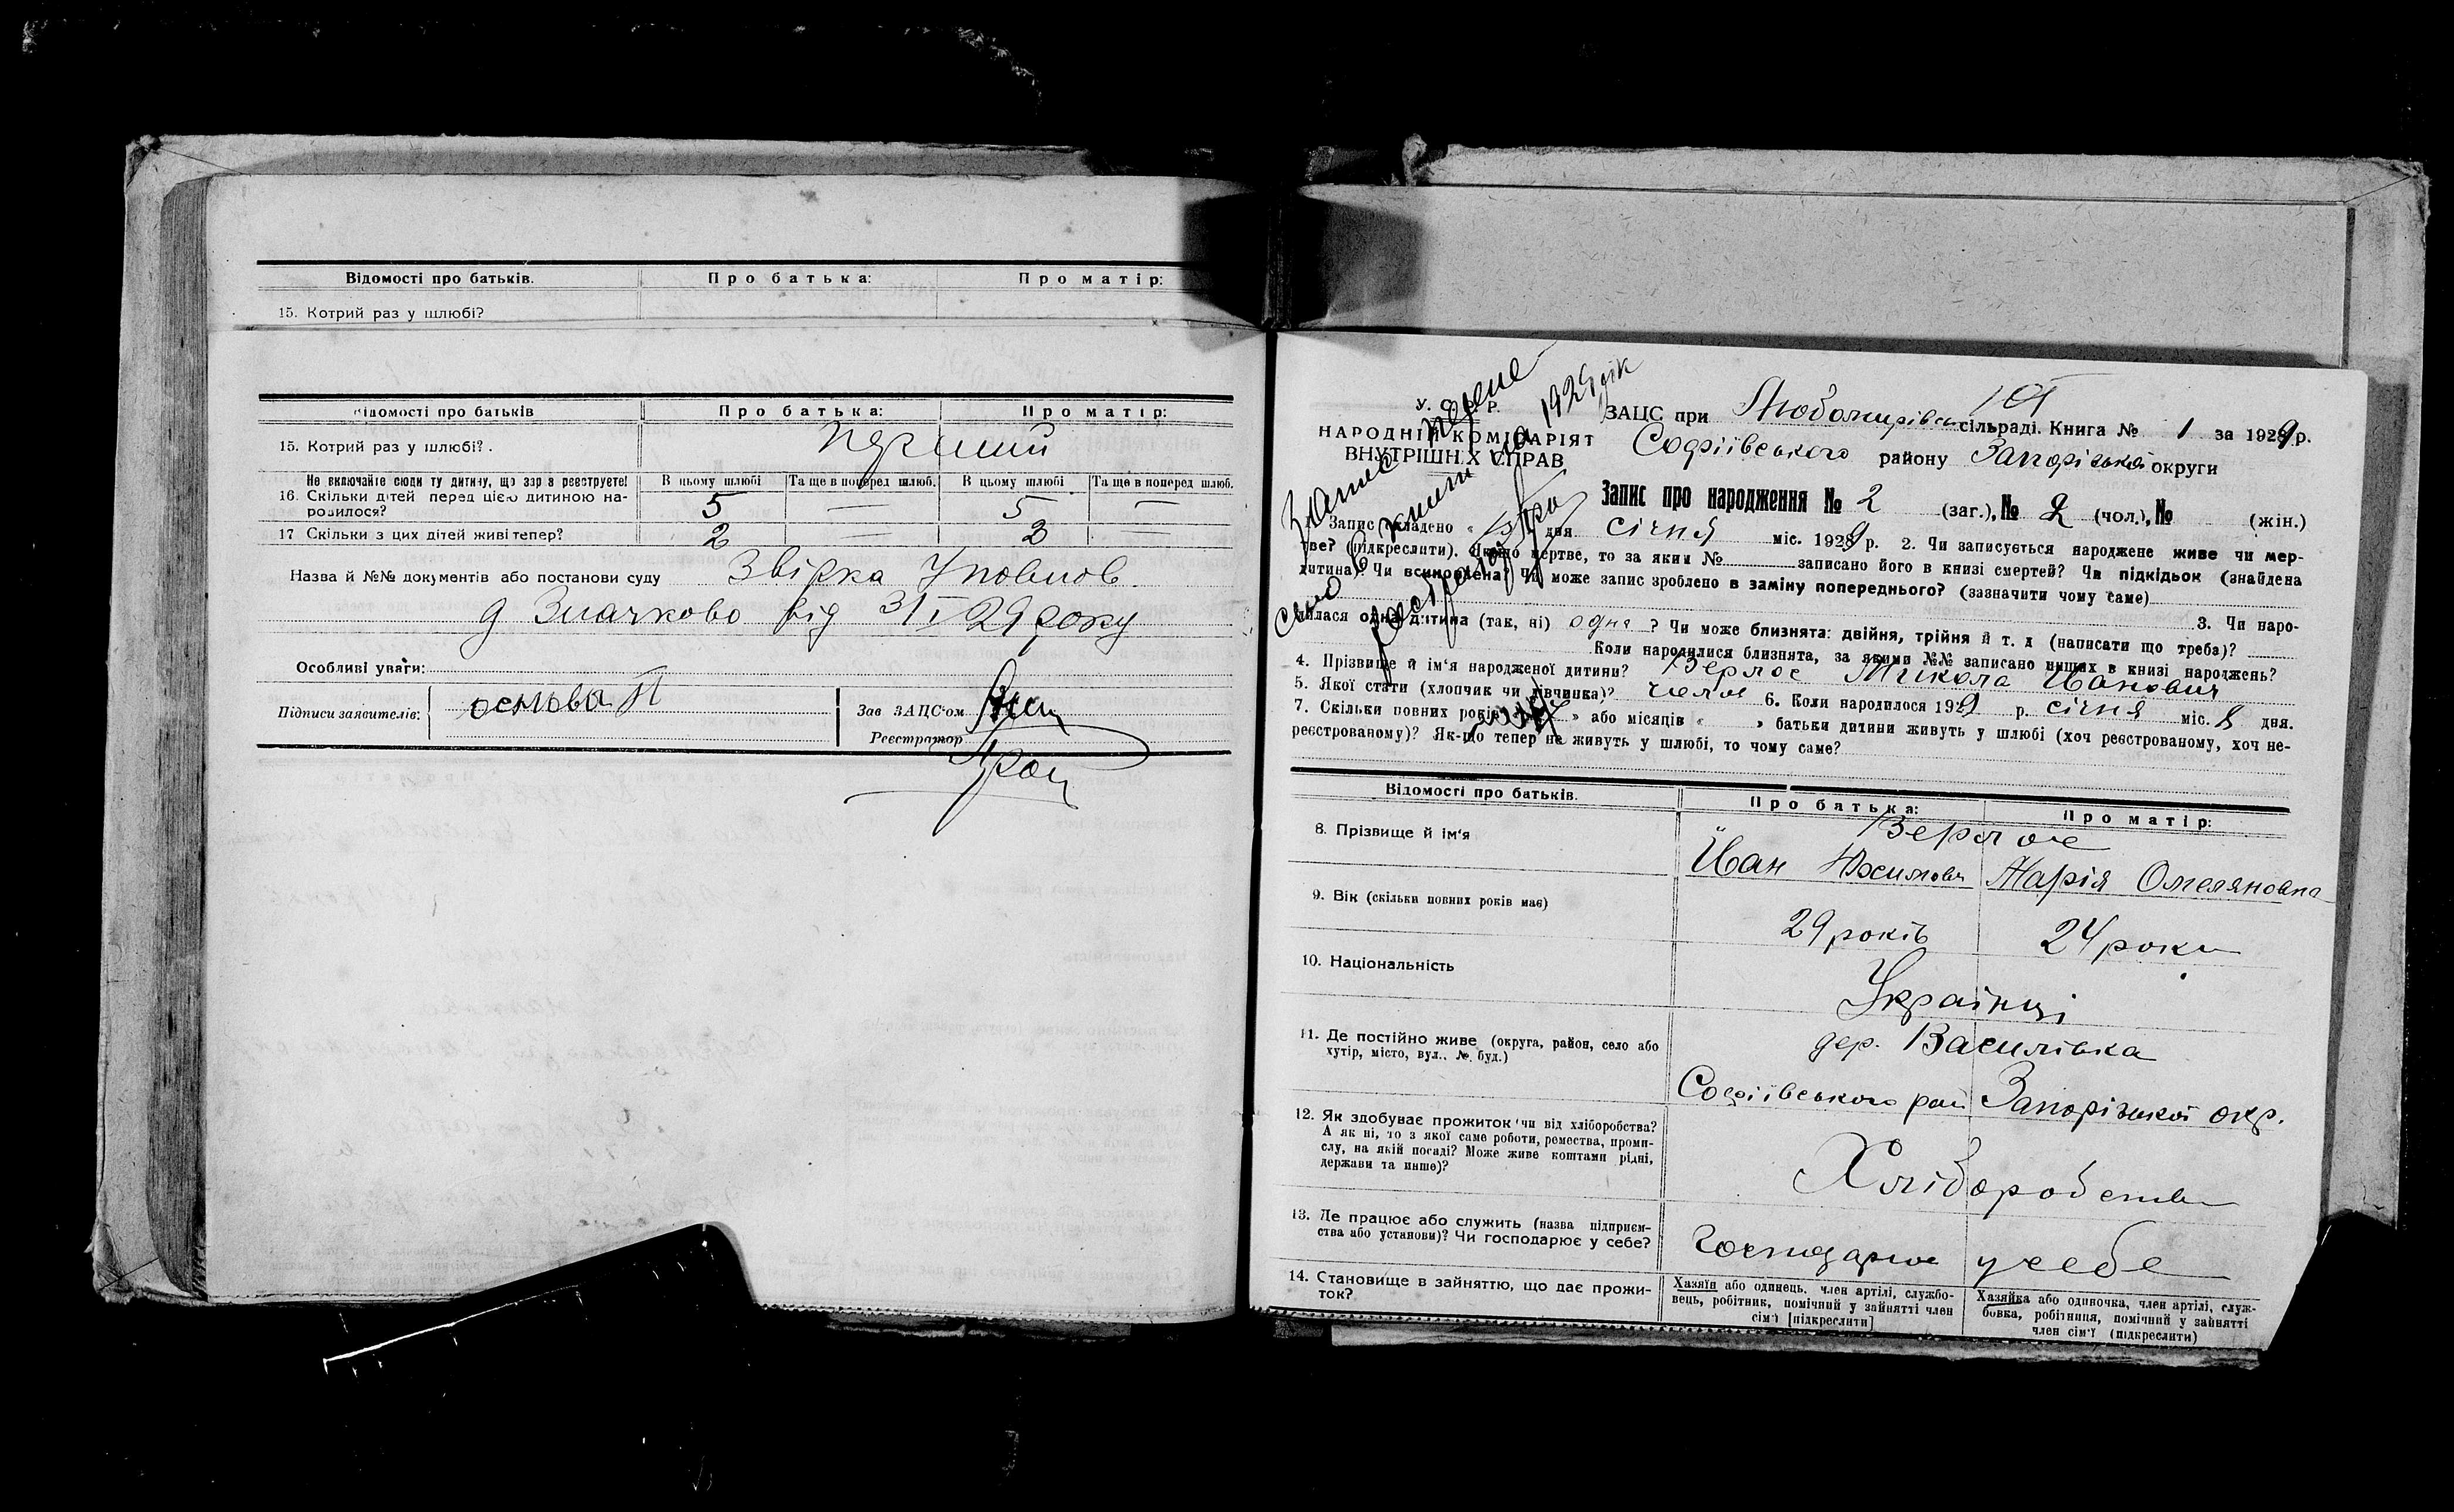 Відомості про батьків. Про батька: Про матір:
15. Котрий раз у шлюбі?
Відомості про батьків Про батька: Про матір:
15. Котрий раз у шлюбі?. перший
Не включайте сюди ту дитину, що зараз реєструєте! В цьому шлюбі Та ще в поперед шлюб. В цьому шлюбі Та ще в поперед шлюб.
16. Скільки дітей перед цією дитиною на-
родилося? 5 — 5 —
17 Скільки з цих дітей живі тепер? 2 — 2 —
Назва й №№ документів або постанови суду Звірка Уповнов.
д Значково від 31/I 29 року
Особливі уваги:
Підписи заявителів: Зав ЗАЦС'ом
Реєстратор
У. С. Р. Р.
НАРОДНІЙ КОМІСАРІЯТ
ВНУТРІШНІХ СПРАВ
ЗАЦС при Любомирівск сільраді. Книга № 1 за 1929 р.
Софіївського району Запорізької округи
Запис про народження № 2 (заг.), № 2 (чол.), № (жін.)
1. Запис складено « » дня січня міс. 1929 р. 2. Чи записується народжене живе чи мер-
тве? (підкреслити). Якщо мертве, то за яким № записано його в книзі смертей? Чи підкідьок (знайдена
дитина)? Чи всиновлена? Чи може запис зроблено в заміну попереднього? (зазначити чому саме)
3. Чи наро-
дилася одна дитина (так, ні) одна ? Чи може близнята: двійня, трійня й т. д (написати що треба)?
Коли народилися близнята, за якими №№ записано инших в книзі народжень?
4. Прізвище й ім'я народженої дитини? Верлос Микола Иванович
5. Якої стати (хлопчик чи дівчинка)? чолов 6. Коли народилося 1929 р. січня міс. 8 дня.
7. Скільки повних років « » або місяців « » батьки дитини живуть у шлюбі (хоч реєстрованому, хоч не-
реєстрованому)? Як-що тепер не живуть у шлюбі, то чому саме?
Відомості про батьків. Про батька: Про матір:
8. Прізвище й ім'я
Иван Марія Омеляновна
9. Вік (скільки повних років має) 29 років 24 роки
10. Національність Українці
11. Де постійно живе (округа, район, село або
хутір, місто, вул.. №. буд.)
дер. Василівка
Софіївського рай Запорізької окр.
12. Як здобуває прожиток чи від хліборобства?
А як ні, то з якої саме роботи, ремества, проми-
слу, на якій посаді? Може живе коштами рідні,
держави та инше)?
Хліборобство
13. Де працює або служить (назва підприєм-
ства або установи)? Чи господарює у себе? Господарює у себе
14. Становище в зайняттю, що дає прожи-
ток?
Хазяїн або одинець, член артілі, службо-
вець, робітник, помічний у зайнятті член
сім'ї [підкреслити]
Хазяйка або одиночка, член артілі, служ-
бовка, робітниця, помічний у зайнятті
член сім'ї (підкреслити)